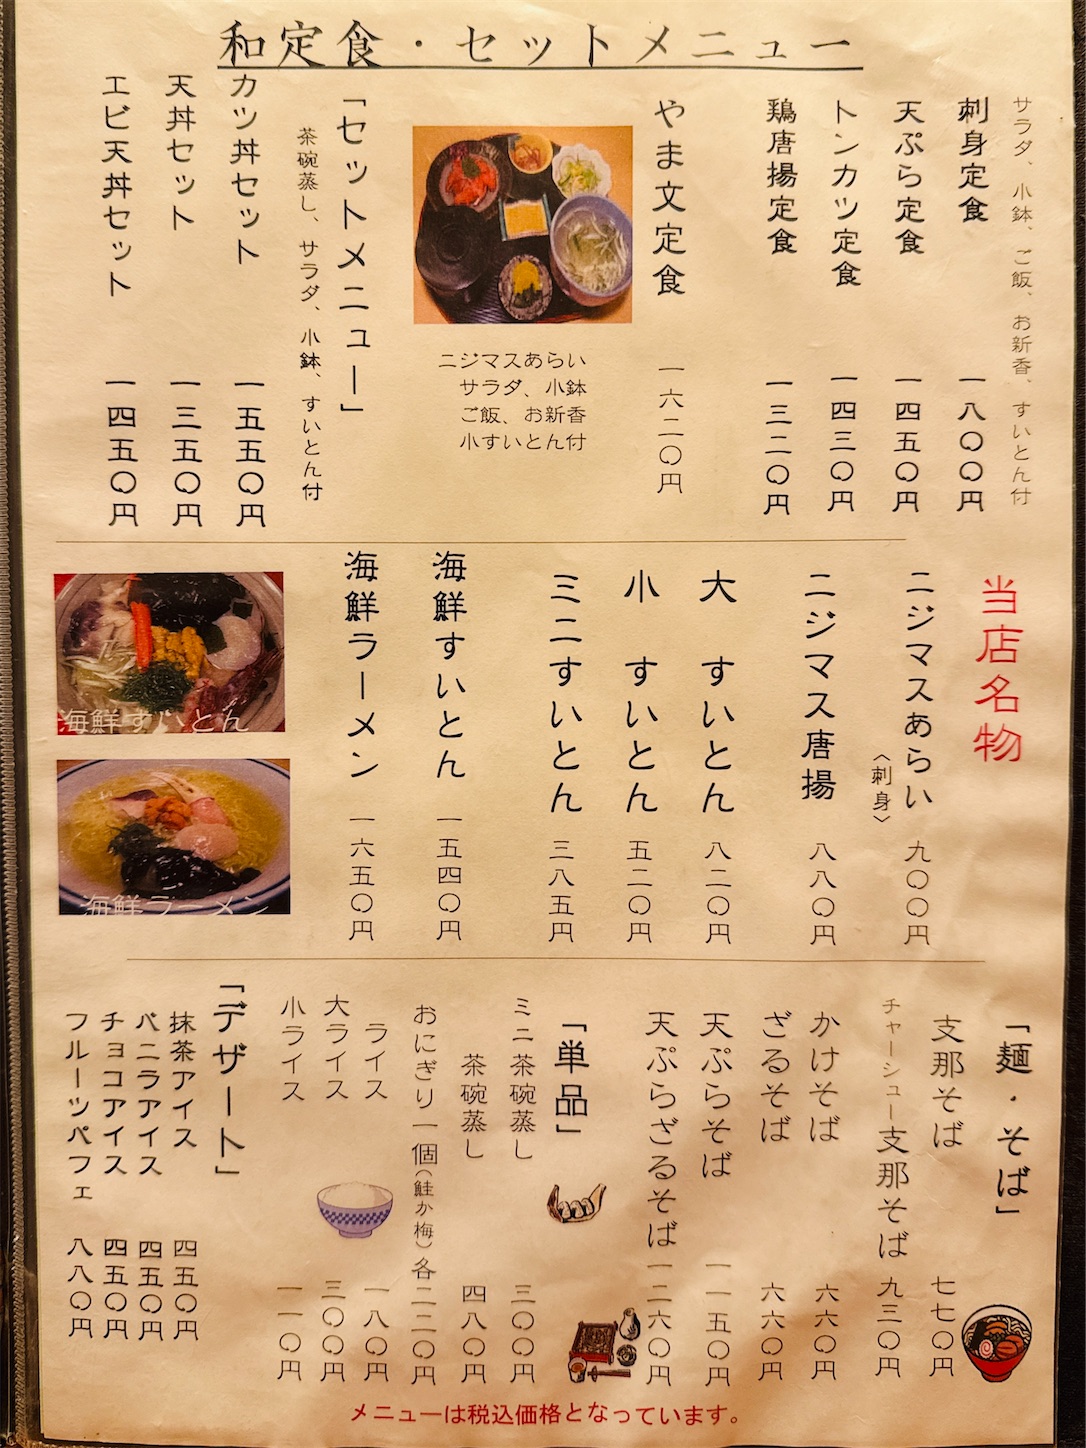 和定食・セットメニュー
サラダ、小鉢、ご飯、お新香、すいとん付
刺身定食 一八〇〇円
天ぷら定食 一四五〇円
トンカツ定食 一四三〇円
鶏唐揚定食 一三二〇円
やま文定食 一六二〇円
ニジマスあらい
サラダ、小鉢
ご飯、お新香
小すいとん付
「セットメニュー」
茶碗蒸し、サラダ、小鉢、すいとん付
カツ丼セット 一五五〇円
天丼セット 一三五〇円
エビ天丼セット 一四五〇円
当店名物
ニジマスあらい 九〇〇円
〈刺身〉
ニジマス唐揚 八八〇円
大 すいとん 八二〇円
小 すいとん 五二〇円
ミニすいとん 三八五円
海鮮すいとん 一五四〇円
海鮮ラーメン 一六五〇円
海鮮すいとん
海鮮ラーメン
「麺・そば」
支那そば 七七〇円
チャーシュー支那そば 九三〇円
かけそば 六六〇円
ざるそば 六六〇円
天ぷらそば 一一五〇円
天ぷらざるそば 一二六〇円
「単品」
ミニ茶碗蒸し 三〇〇円
茶碗蒸し 四八〇円
おにぎり一個(鮭か梅)各二二〇円
ライス 一八〇円
大ライス 三〇〇円
小ライス 一一〇円
「デザート」
抹茶アイス 四五〇円
バニラアイス 四五〇円
チョコアイス 四五〇円
フルーツパフェ 八八〇円
メニューは税込価格となっています。